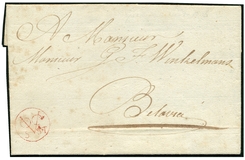 A Monsieur
Monsieur J. F. Winkelmann
Batavia